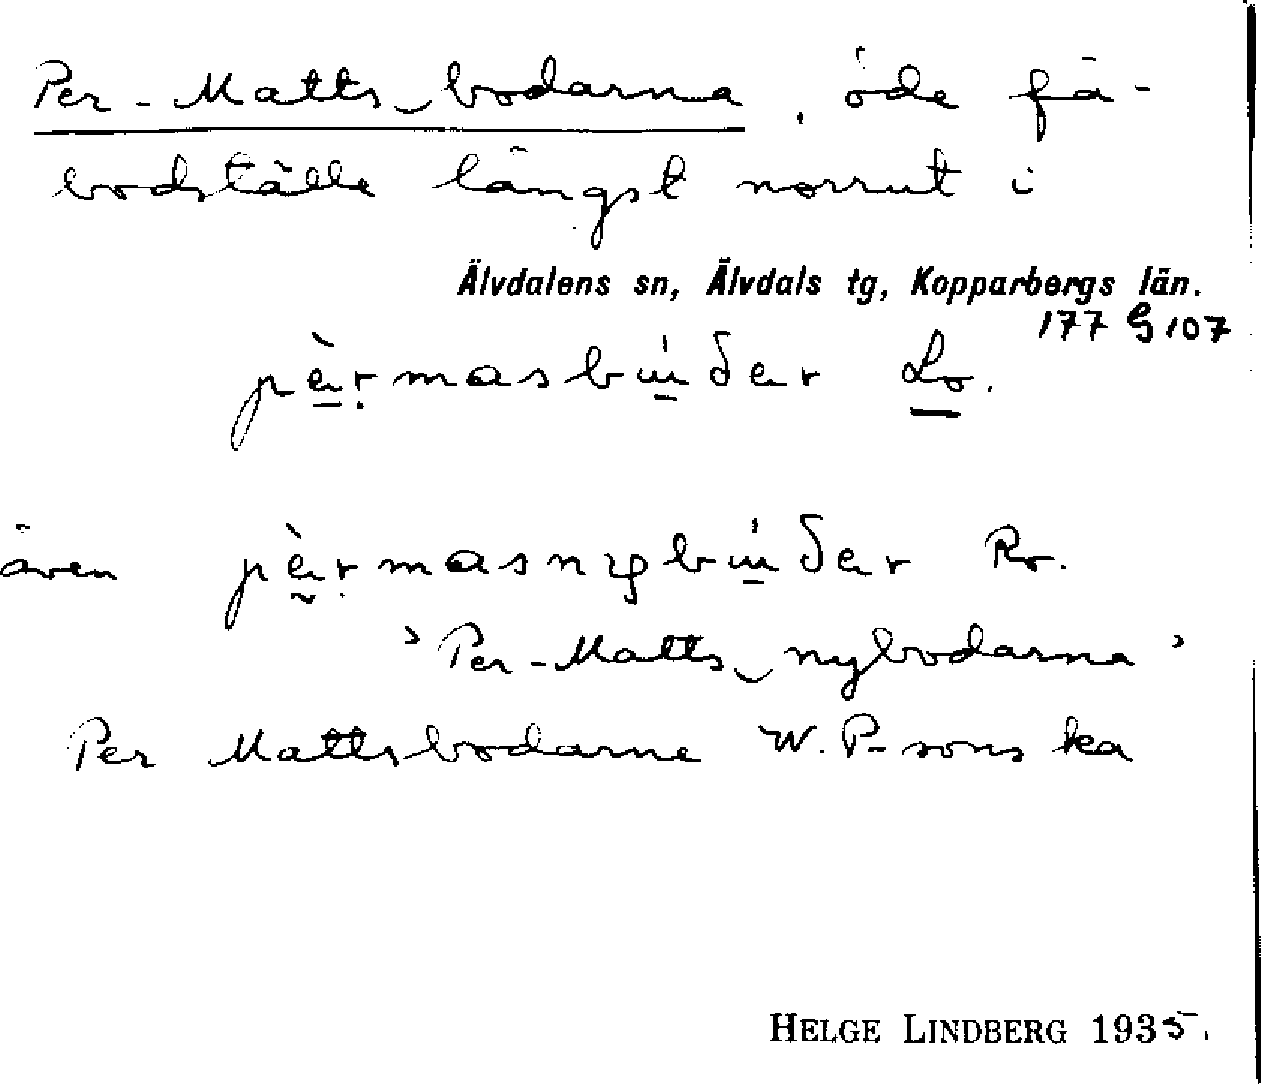 Per-Matts-bodarna, öde fä-
bodställe längst norrut i
Älvdalens sn, Älvdals tg, Kopparbergs län.
177 G 107
Lo.
även Ro.
'Per-Matts-nybodarna'
Per Mattsbodarne W. P-sons ka
HELGE LINDBERG 1935.